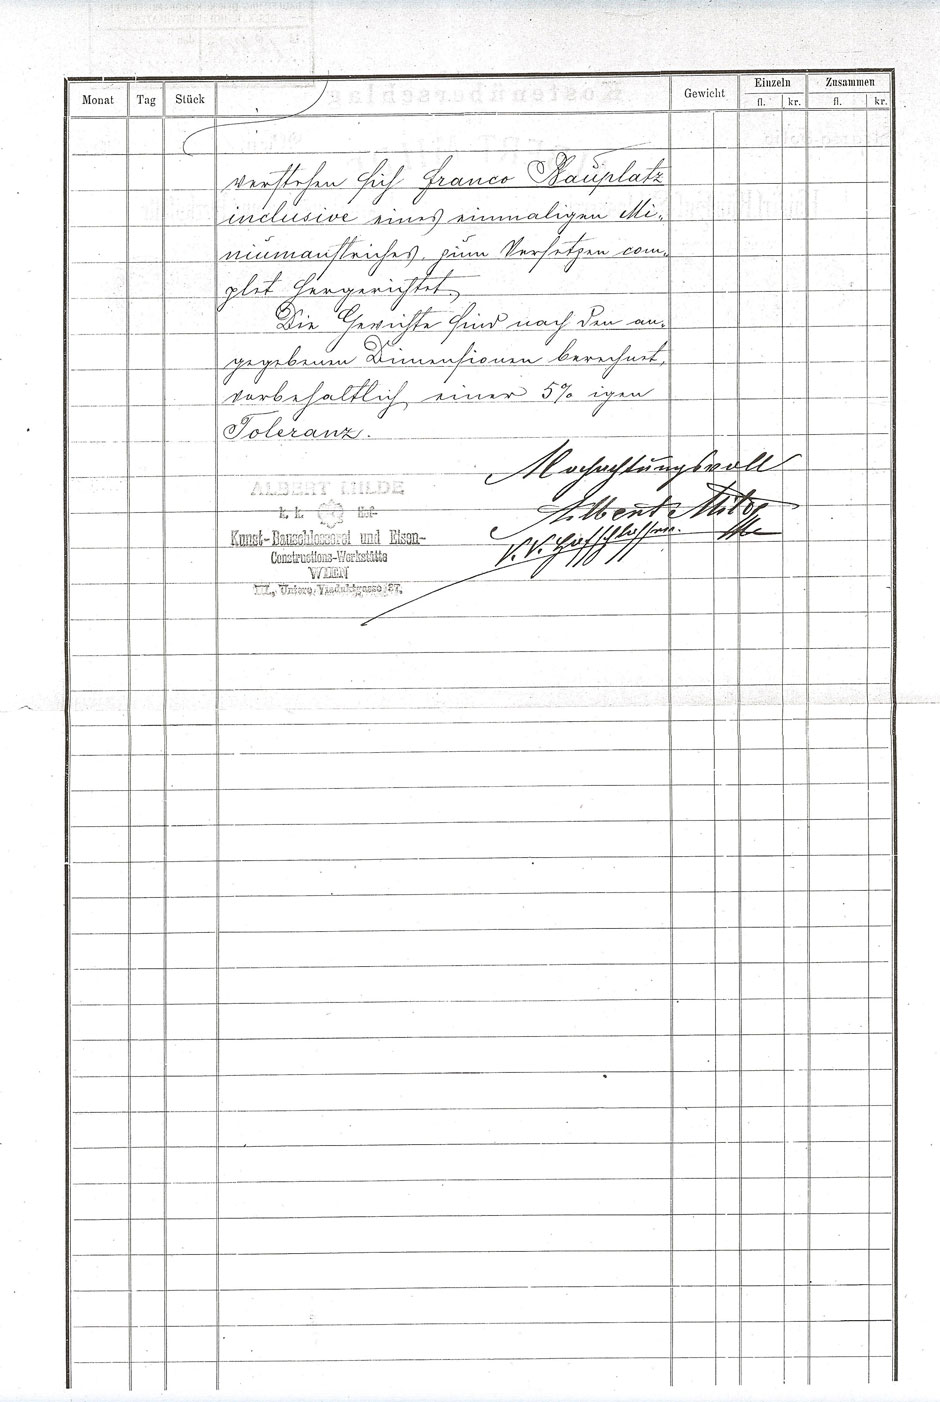 Monat Tag Stück Gewicht Einzeln Zusammen
fl. kr. fl. kr.
verstehen sich franco Bauplatz
inclusive eines einmaligen Mi-
niumanstriches, zum Versetzen com-
plet hergerichtet.
Die Gewichte sind nach den an-
gegebenen Dimensionen berechnet,
vorbehaltlich einer 5% igen
Toleranz.
Hochachtungsvoll
Albert Milde
k. k. Hofschlosser
ALBERT MILDE
k. k. Hof-
Kunst-Bauschlosserei und Eisen-
Constructions-Werkstätte
WIEN
III., Untere Viaduktgasse